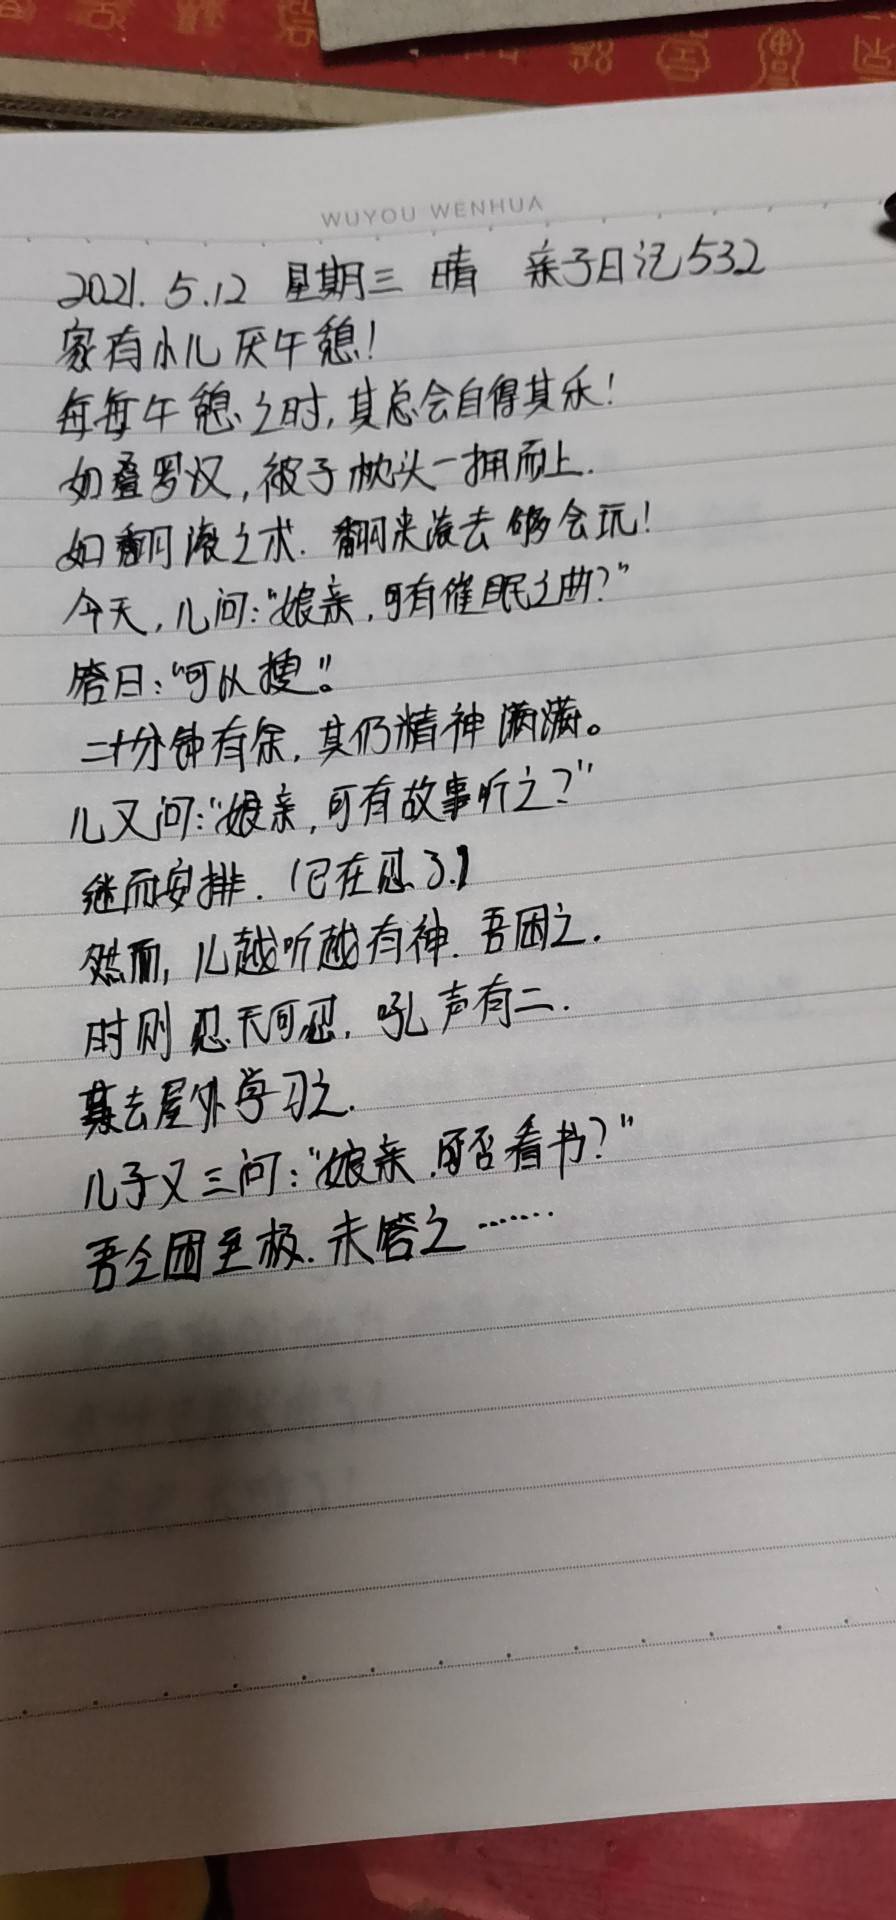 WUYOU WENHUA
2021. 5.12 星期三 晴 亲子日记532
家有小儿厌午憩!
每每午憩之时,其总会自得其乐!
如叠罗汉,被子枕头一拥而上.
如翻滚之术.翻来滚去够会玩!
今天,儿问:“娘亲,可有催眠之曲?”
答曰:“可以搜”。
二十分钟有余,其仍精神满满。
儿又问:“娘亲,可有故事听之?”
继而安排.(已在忍了.)
然而,儿越听越有神.吾困之.
时则忍无可忍,吼声有二.
去屋外学习之.
儿子又三问:“娘亲,可否看书?”
吾全困至极.未答之……